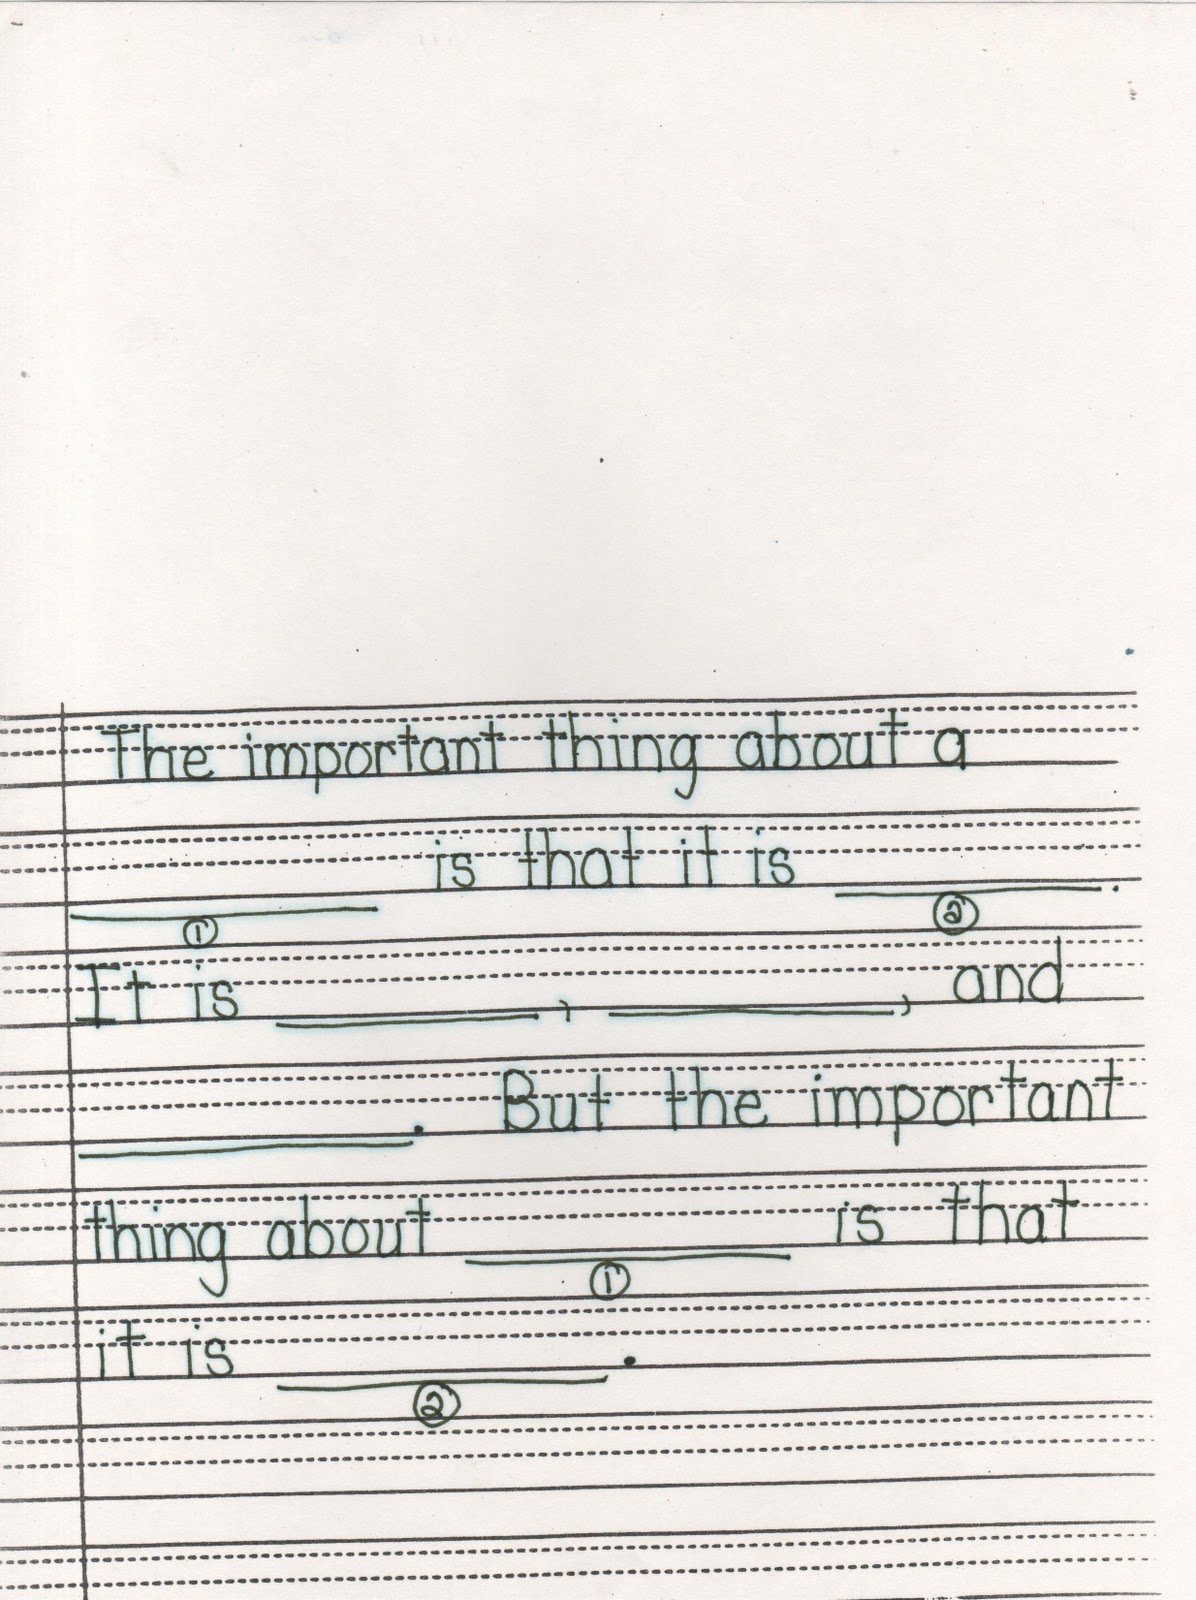 The important thing about a
________ is that it is ________.
① ②
It is ________, ________, and
________. But the important
thing about ________ is that
①
it is ________.
②